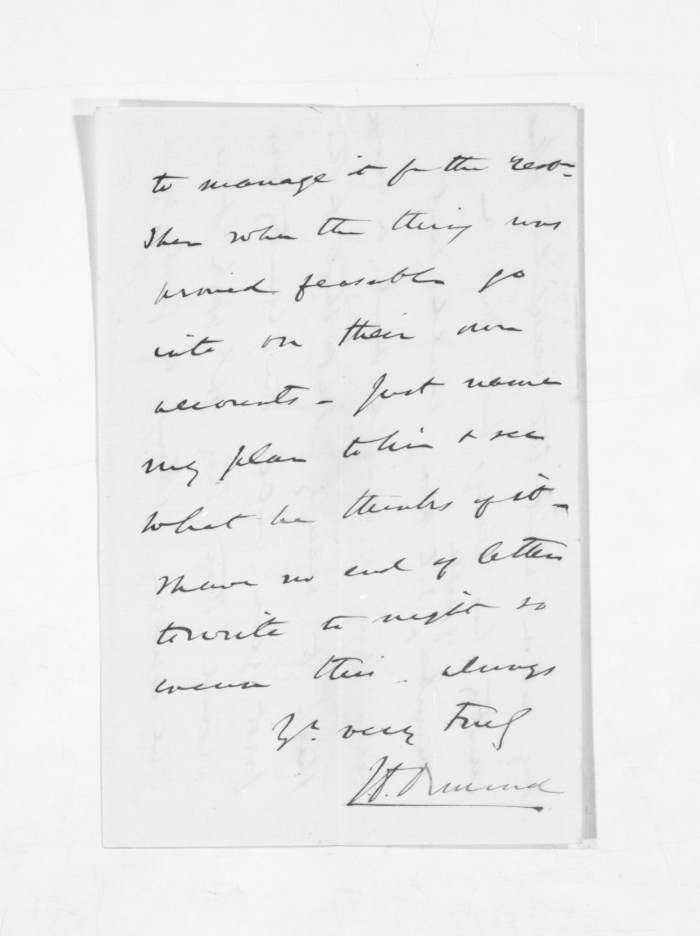 to manage it for the rest -
Then when the thing was
proved feasable go
into on their own
accounts - Just name
my plan to him & see
what he thinks of it -
I have no end of letters
to write to night so
excuse this. always
Yr. very Truly
J.D. Ormond